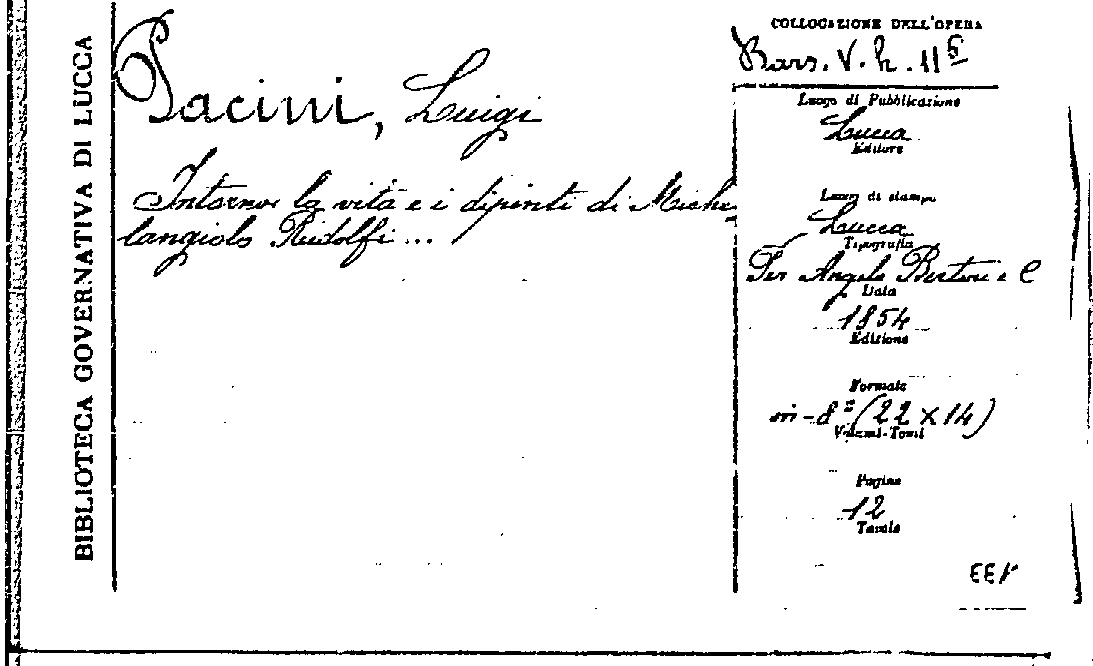 BIBLIOTECA GOVERNATIVA DI LUCCA
Pacini, Luigi
Intorno la vita e i dipinti di Miche-
langiolo Ridolfi...
COLLOCAZIONE DELL'OPERA
Bars. V. h. 11
Luogo di Pubblicazione
Lucca
Editore
Luogo di stampa
Lucca
Tipografia
Per Angelo Bertini e C
Data
1854
Edizione
Formato
in-8° (22 x 14)
Volumi-Tomi
Pagine
12
Tavole